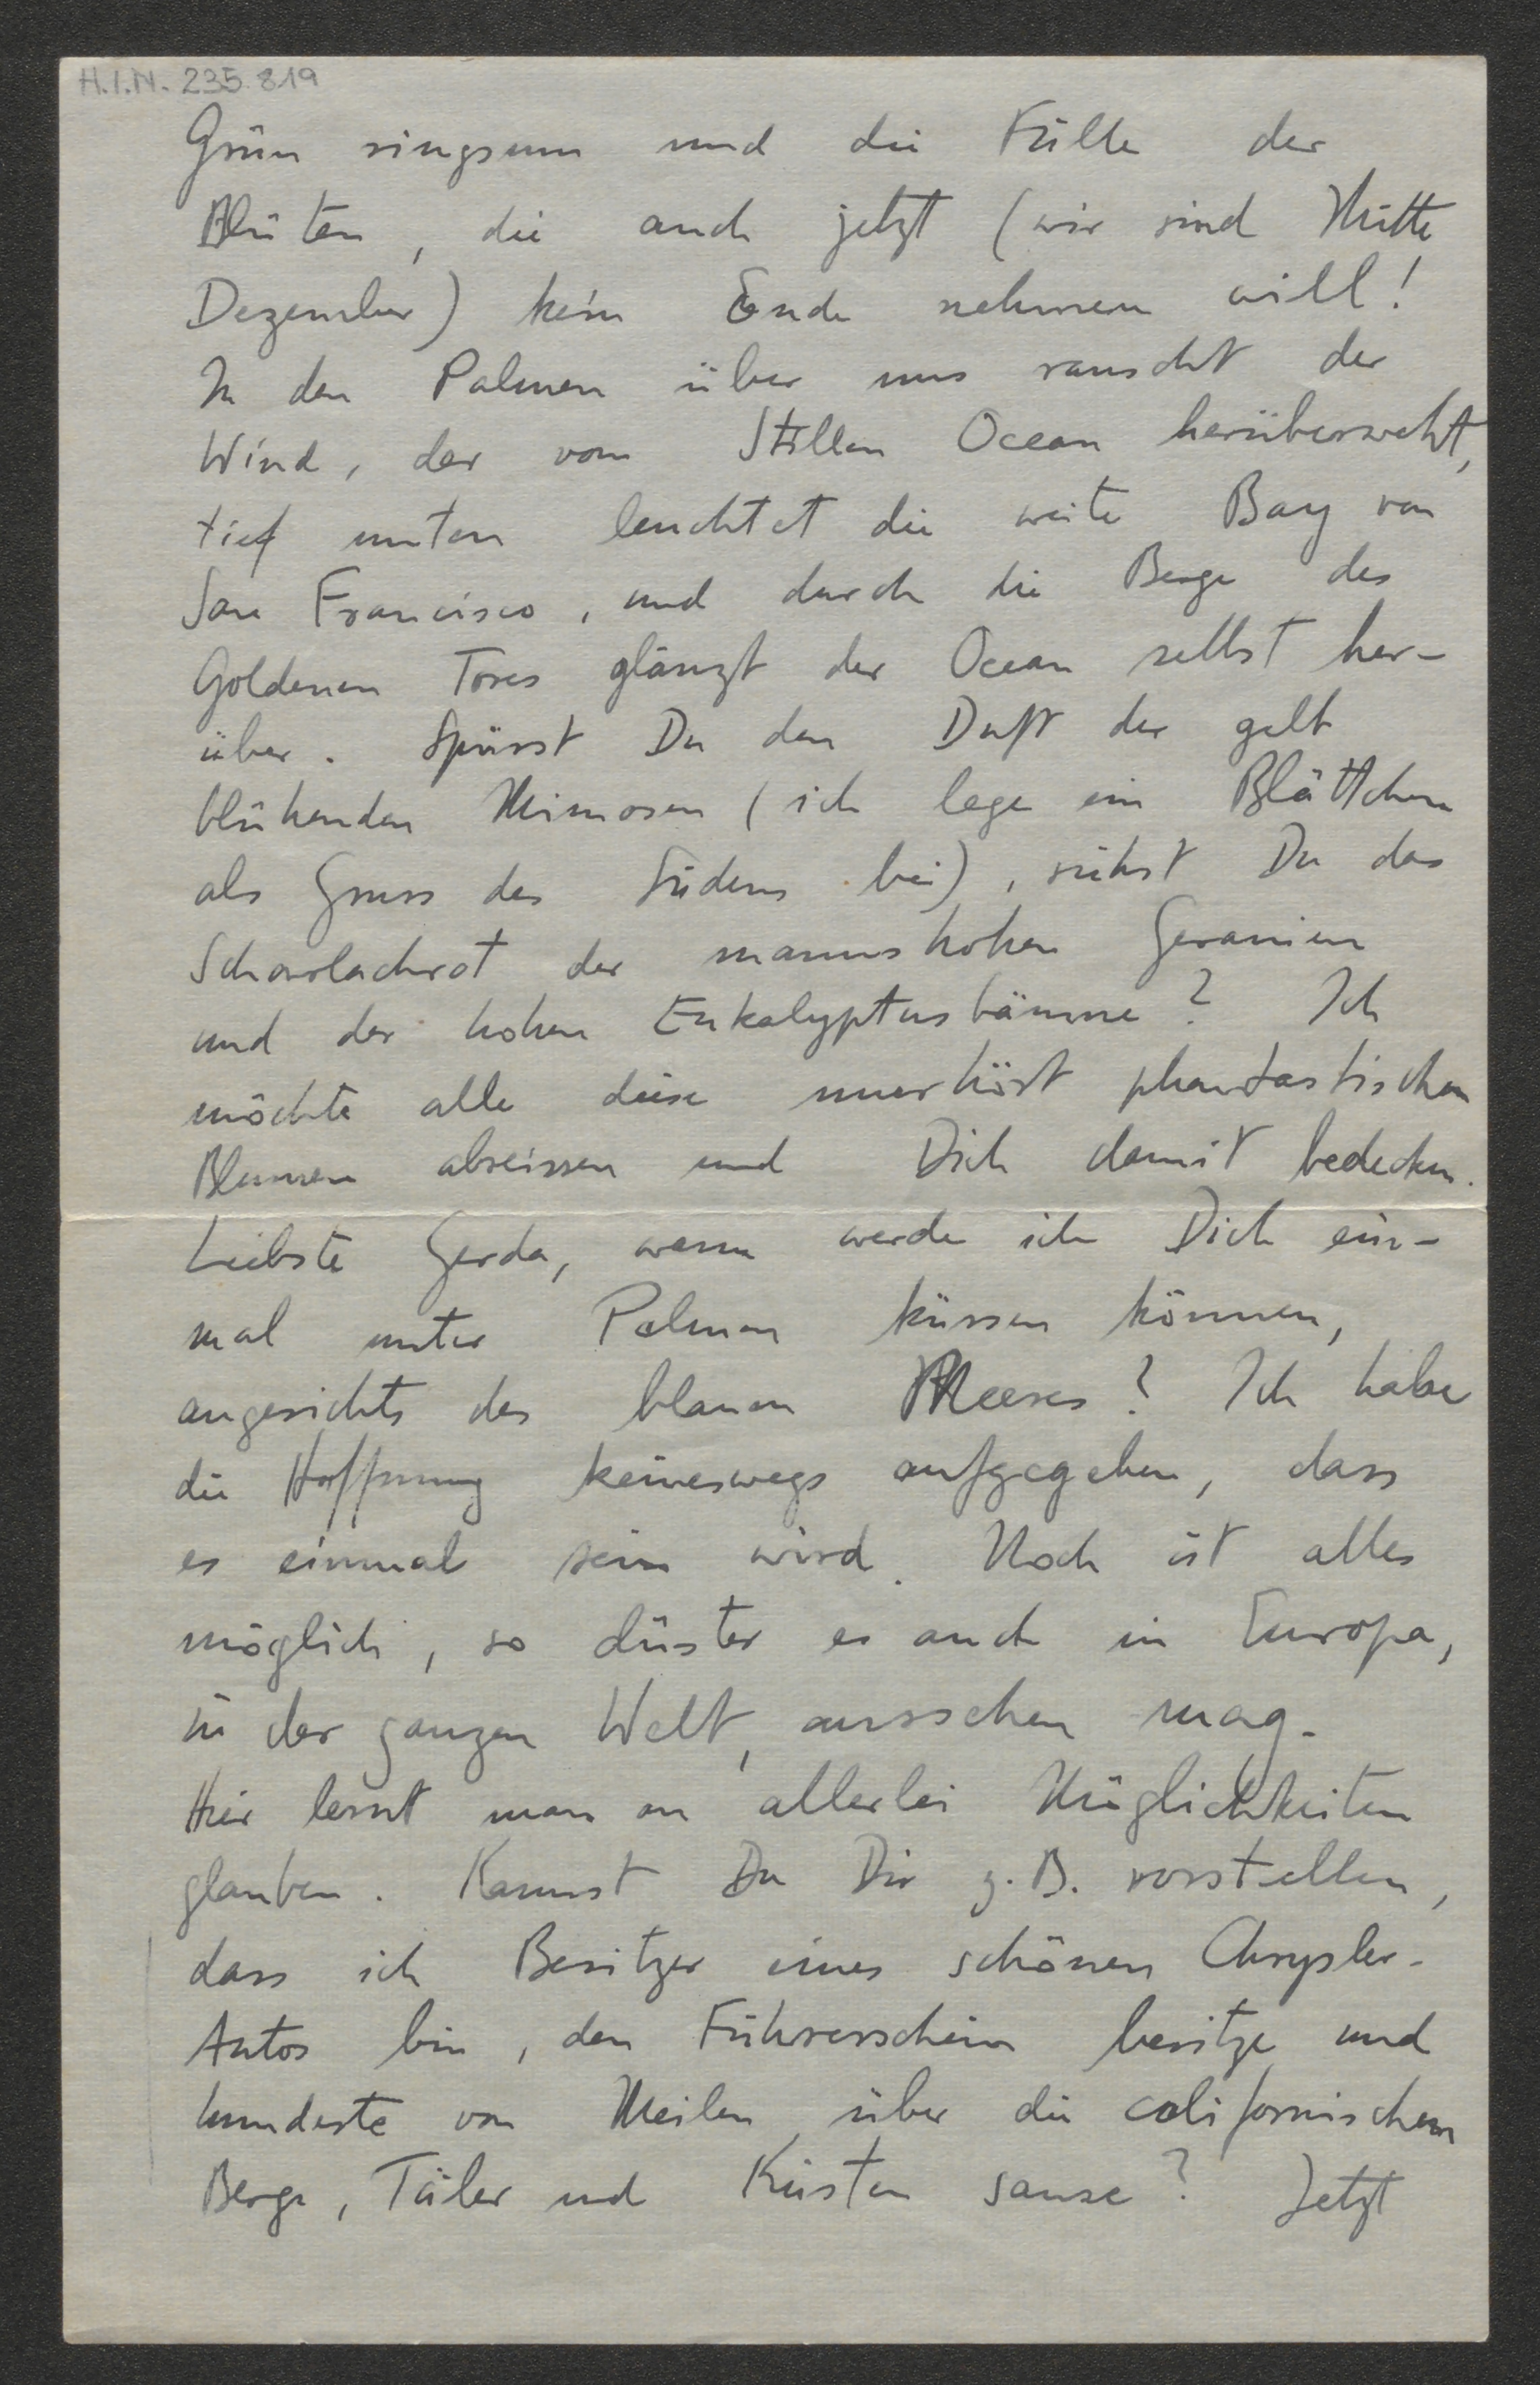 H.I.N. 235.819
Grün ringsum und die Fülle der
Blüten, die auch jetzt (wir sind Mitte
Dezember) kein Ende nehmen will!
In den Palmen über uns rauscht der
Wind, der vom Stillen Ocean herüberweht,
tief unten leuchtet die weite Bay von
San Francisco, und durch die Berge des
Goldenen Tores glänzt der Ocean selbst her-
über. Spürst Du den Duft der gelb
blühenden Mimosen (ich lege ein Blättchen
als Gruss des Südens bei), siehst Du das
Scharlachrot der mannshohen Geranien
und der hohen Eukalyptusbäume? Ich
möchte alle diese unerhört phantastischen
Blumen abreissen und Dich damit bedecken.
Liebste Gerda, wann werde ich Dich ein-
mal unter Palmen küssen können,
angesichts des blauen Meeres? Ich habe
die Hoffnung keineswegs aufgegeben, dass
es einmal sein wird. Noch ist alles
möglich, so düster es auch in Europa,
in der ganzen Welt, aussehen mag.
Hier lernt man an allerlei Möglichkeiten
glauben. Kannst Du Dir z.B. vorstellen,
dass ich Besitzer eines schönen Chrysler-
Autos bin, den Führerschein besitze und
hunderte von Meilen über die californischen
Berge, Täler und Küsten sause? Jetzt